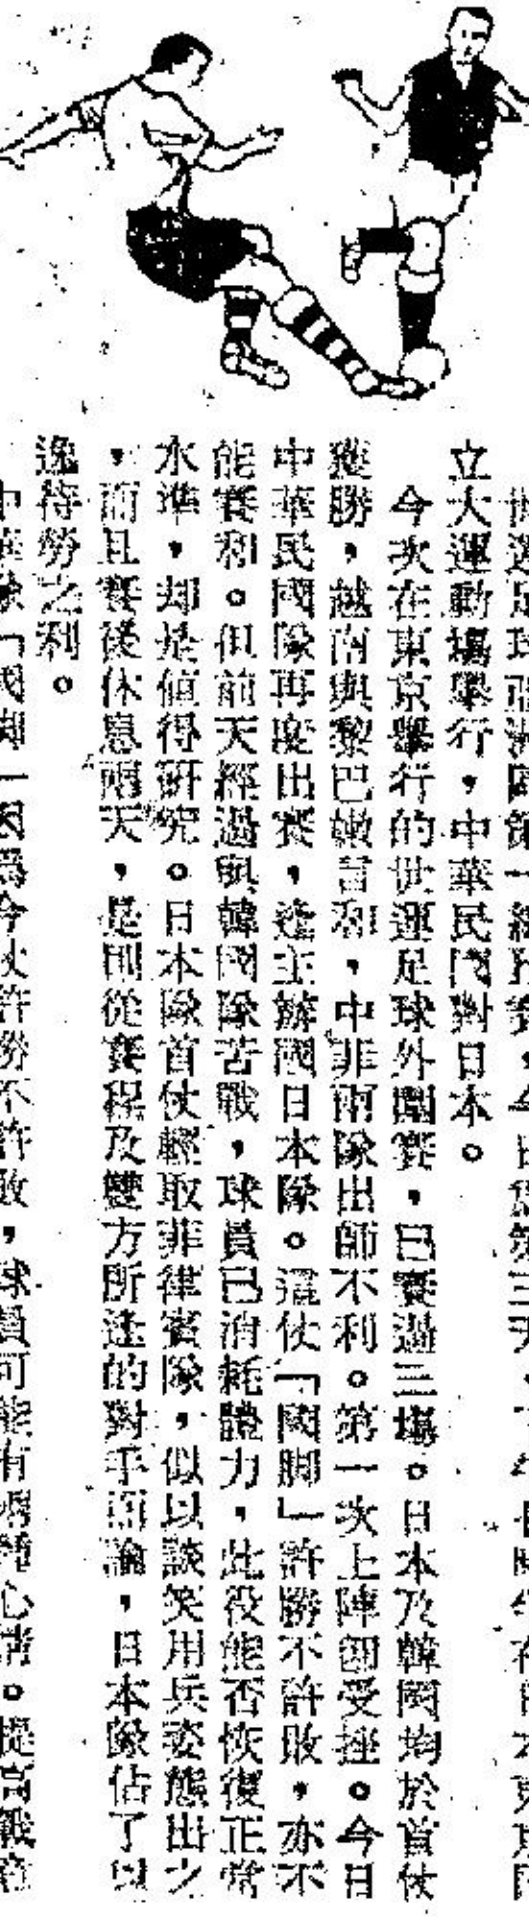 世運足球亞洲區第一組預賽，今日為第三天，下午七時半在日本東京國
立大運動場舉行，中華民國對日本。
今次在東京舉行的世運足球外圍賽，已賽過三場。日本及韓國均於首仗
獲勝，越南與黎巴嫩言和，中菲兩隊出師不利。第一次上陣卽受挫。今日
中華民國隊再度出賽，逢主辦國日本隊。這仗「國脚」許勝不許敗，亦不
能賽和。但前天經過與韓國隊苦戰，球員已消耗體力，此役能否恢復正常
水準，却是值得研究。日本隊首仗輕取菲律賓隊，似以談笑用兵姿態出之
，而且賽後休息兩天，是則從賽程及雙方所逢的對手而論，日本隊佔了以
逸待勞之利。
中華隊「國脚」因為今仗許勝不許敗，球員可能有心情。提高戰意